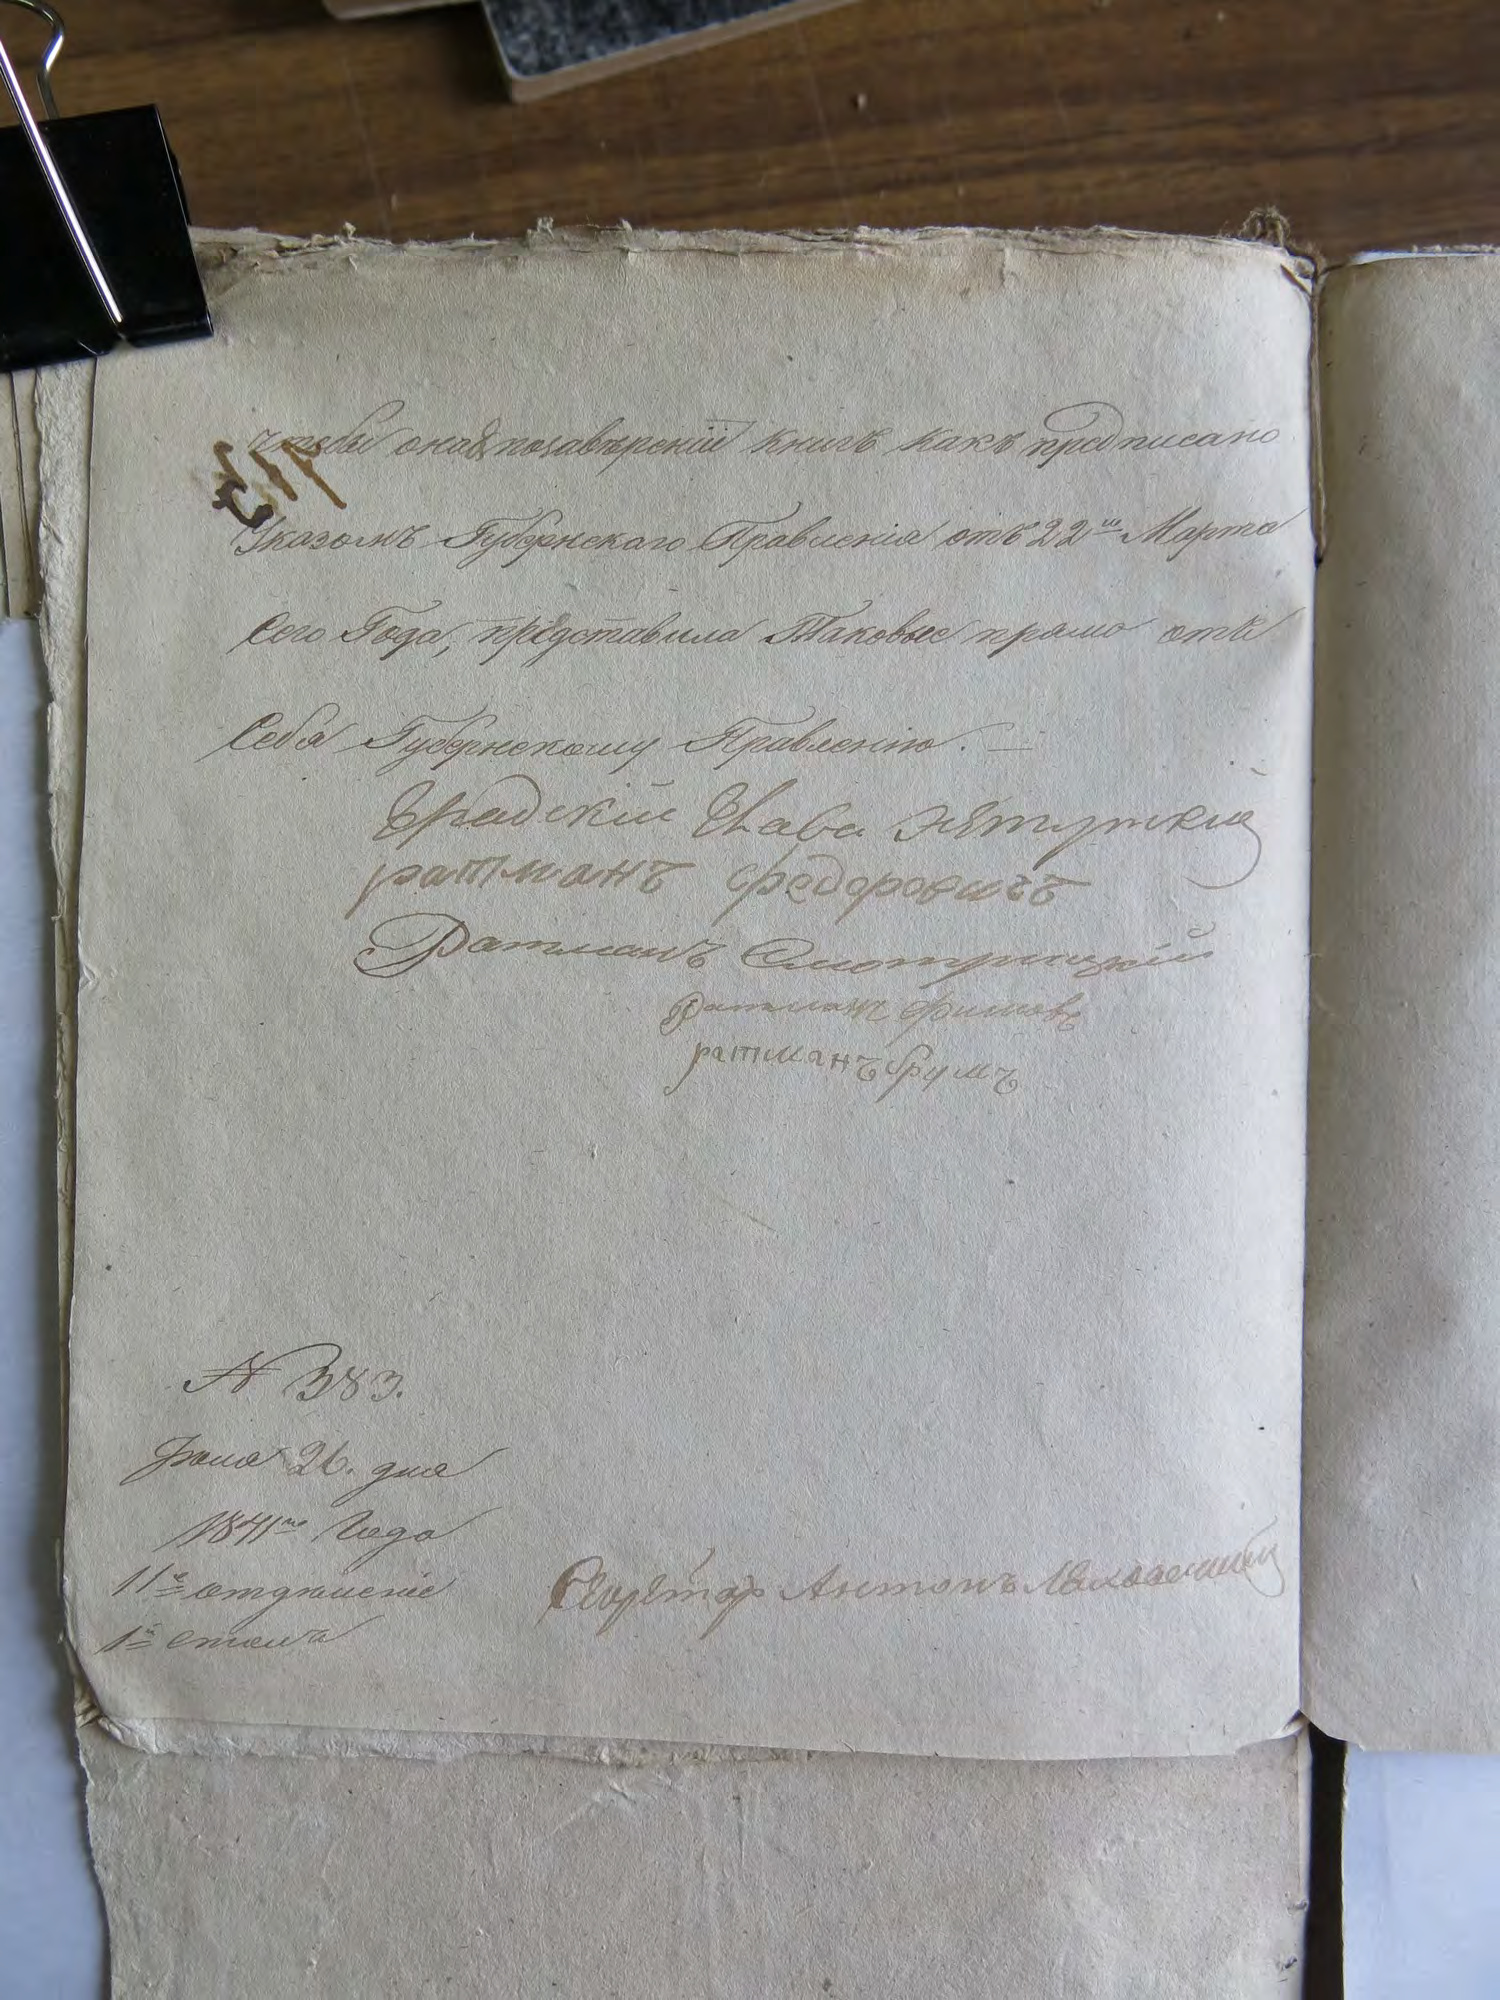 чтобы оная позавѣрении книгъ какъ предписано
Указомъ Губернскаго Правленія отъ 22го Марта
Сего Года, представила Таковые прямо отъ
Себя Губернскому Правленію. —
Градскій Глава
ратманъ Федоровичъ
Ратманъ Смотрицкій
Ратманъ
ратманъ Брумъ
№ 383.
26. дня
1841го Года
1е отдѣленіе
1й столъ
Секретарь Антонъ